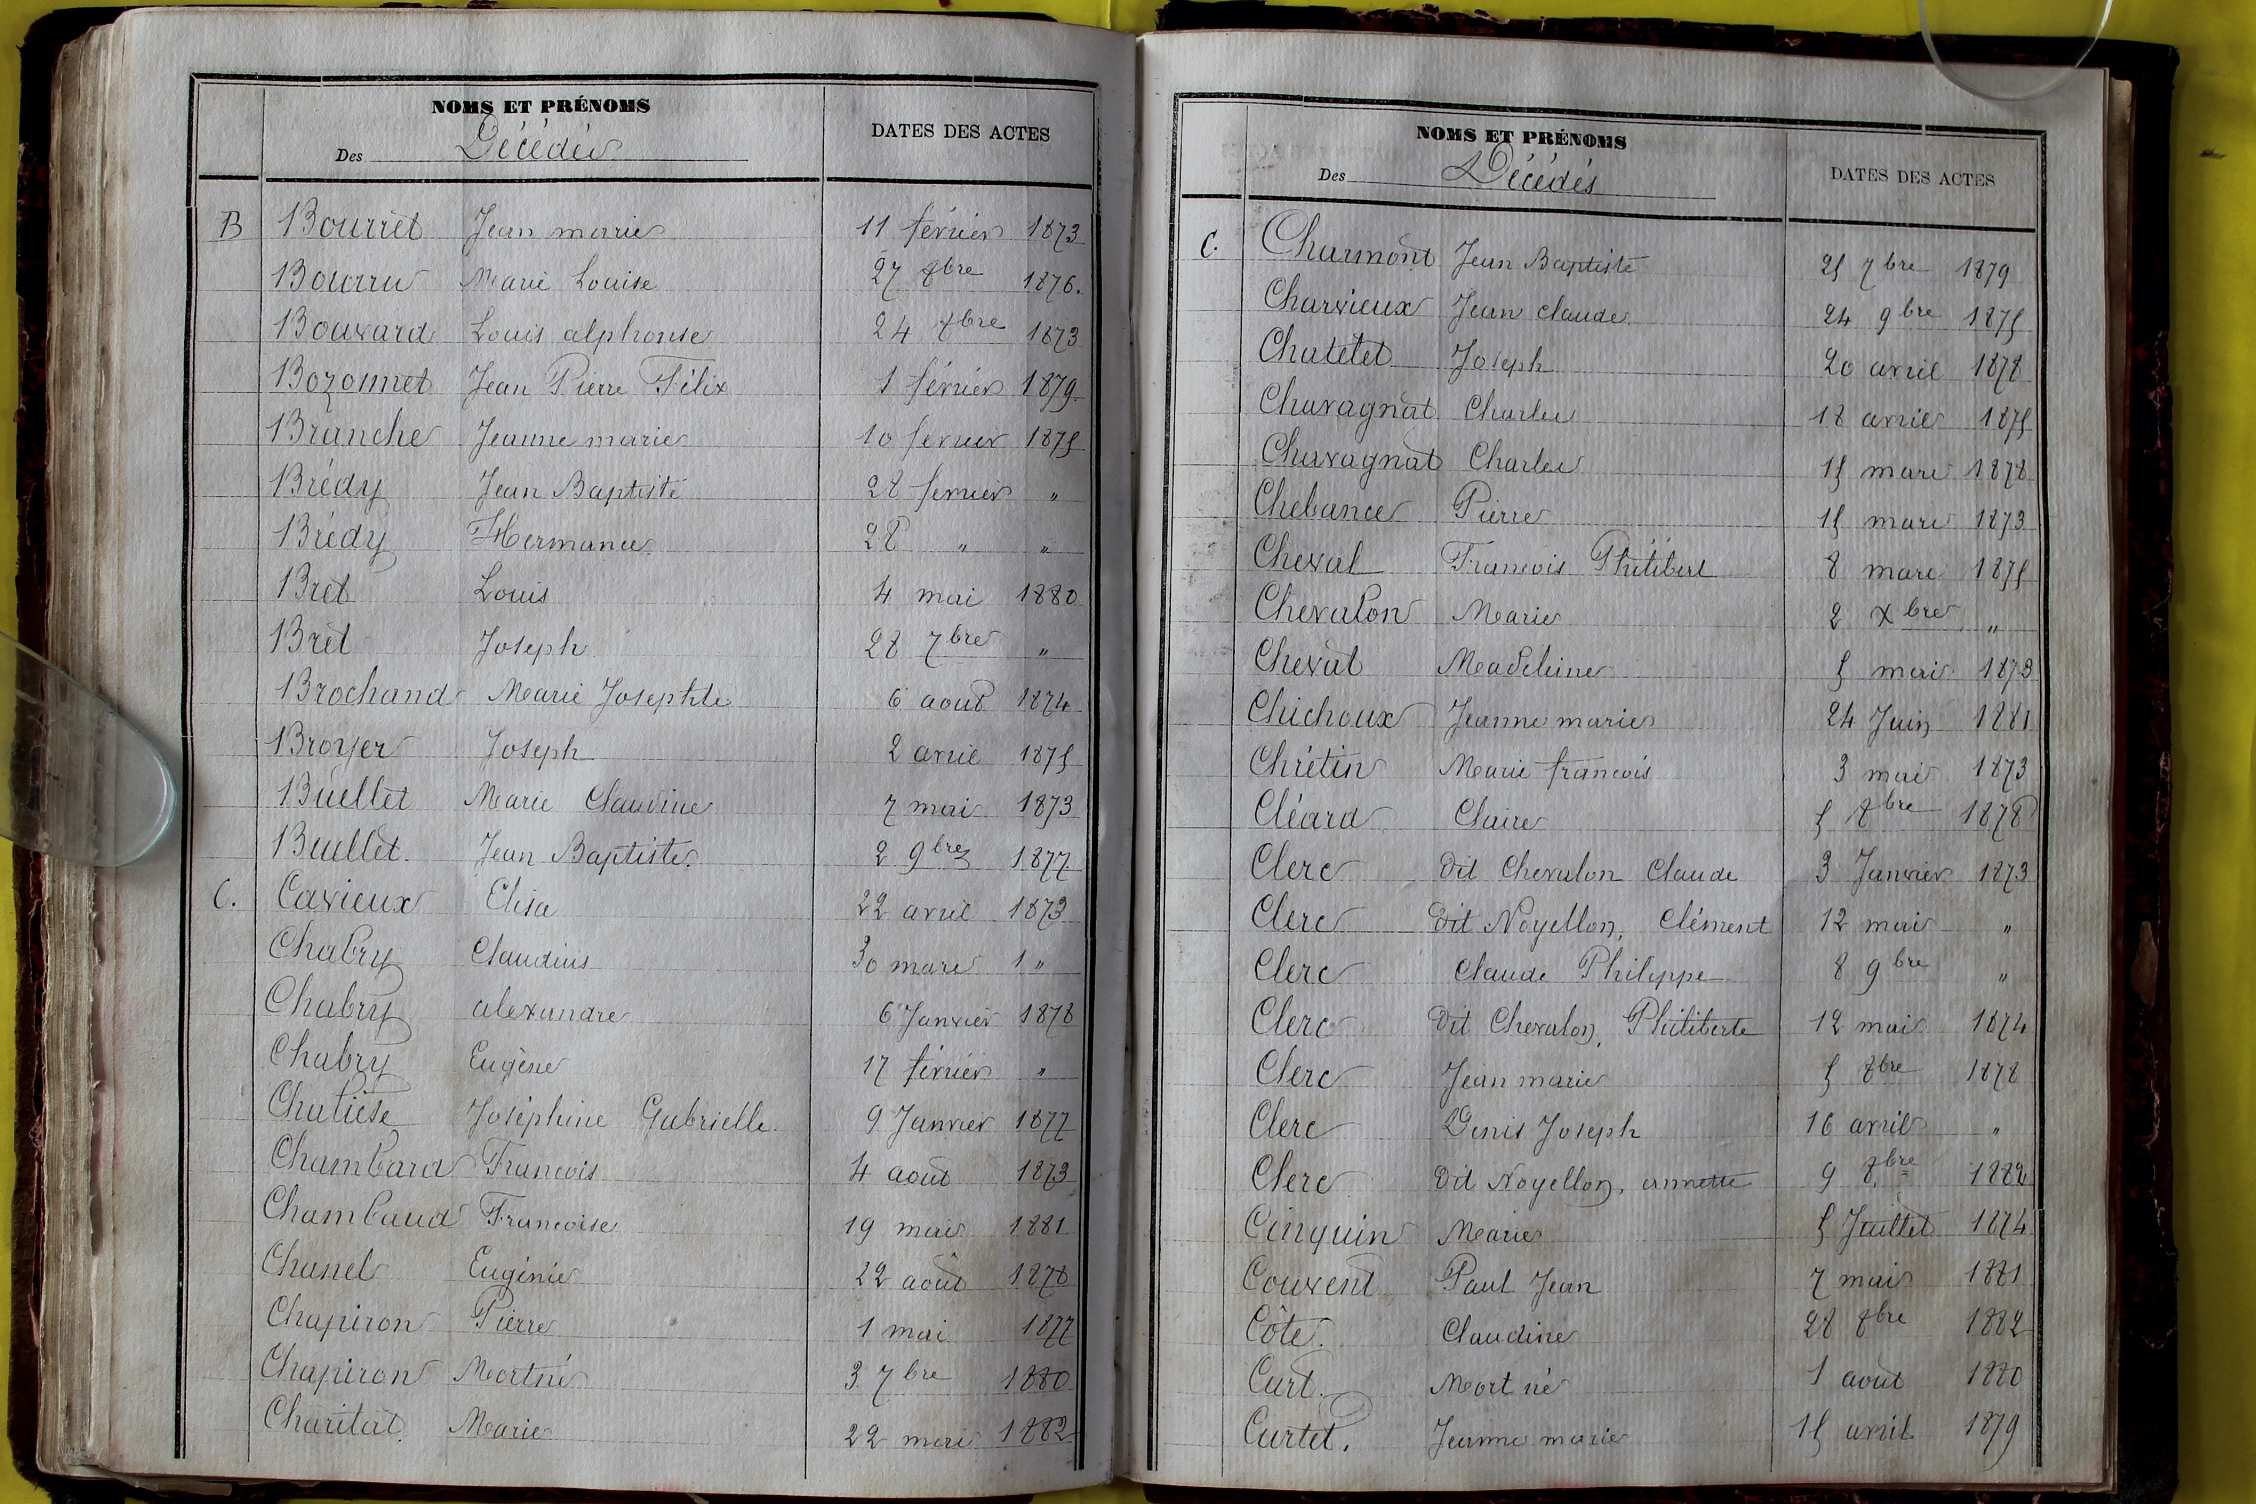 NOMS ET PRÉNOMS
Des Décédés
DATES DES ACTES
B Bourret Jean marie 11 février 1873
Bourru Marie Louise 27 8bre 1876.
Bouvard Louis alphonse 24 7bre 1873
Bozonnet Jean Pierre Félix 1 février 1879
Branche Jeanne marie 10 fevrier 1875
Brédy Jean Baptiste 28 fevrier "
Brédy Hermance 28 " "
Bret Louis 4 mai 1880
Bret Joseph 28 7bre "
Brochand Marie Josephte 6 aout 1874
Broyer Joseph 2 avril 1875
Buellet Marie Claudine 7 mai 1873
Buellet Jean Baptiste. 2 9bre 1877
C. Cavieux Elisa 22 avril 1873
Chabry Claudius 30 mars 1 "
Chabry alexandre 6 Janvier 1878
Chabry Eugène 17 février "
Josephine Gabrielle 9 Janvier 1877
Chambard Francois 4 août 1873
Chambaud Francoise 19 1881
Chanel Eugénie 22 août 1878
Chapiron Pierre 1 mai 1877
Chapiron Mortné 3 7bre 1880
Charitat Marie 22 1882
NOMS ET PRÉNOMS
Des Décédés
DATES DES ACTES
C. Charmont Jean Baptiste 25 7bre 1879
Charvieux Jean claude 24 9bre 1875
Chatelet Joseph 20 avril 1878
Chavagnat Charles 18 avril 1875
Chavagnat Charles 15 mars 1878
Chebance Pierre 15 mars 1873
Cheval Francois Philibert 8 mars 1875
Chevalon Marie 2 Xbre "
Cheval Madeleine 5 mai 1873
Chichoux Jeanne marie 24 Juin 1881
Chrétin Marie francois 3 mai 1873
Cléard Claire 5 8bre 1878
Clerc Dit Chevalon Claude 3 Janvier 1873
Clerc Dit Noyellon, Clément 12 mai "
Clerc Claude Philippe 8 9bre "
Clerc Dit Chevalon, Philiberte 12 mai 1874
Clerc Jean marie 5 8bre 1878
Clerc Denis Joseph 16 avril "
Clerc Dit Noyellon, annette 9 8bre 1882
Cinquin Marie 5 Juillet 1874
Couvent Paul Jean 7 mai 1881
Côte. Claudine 28 8bre 1882
Curt. Mort né 1 août 1880
Curtet. Jeanne marie 15 avril 1879